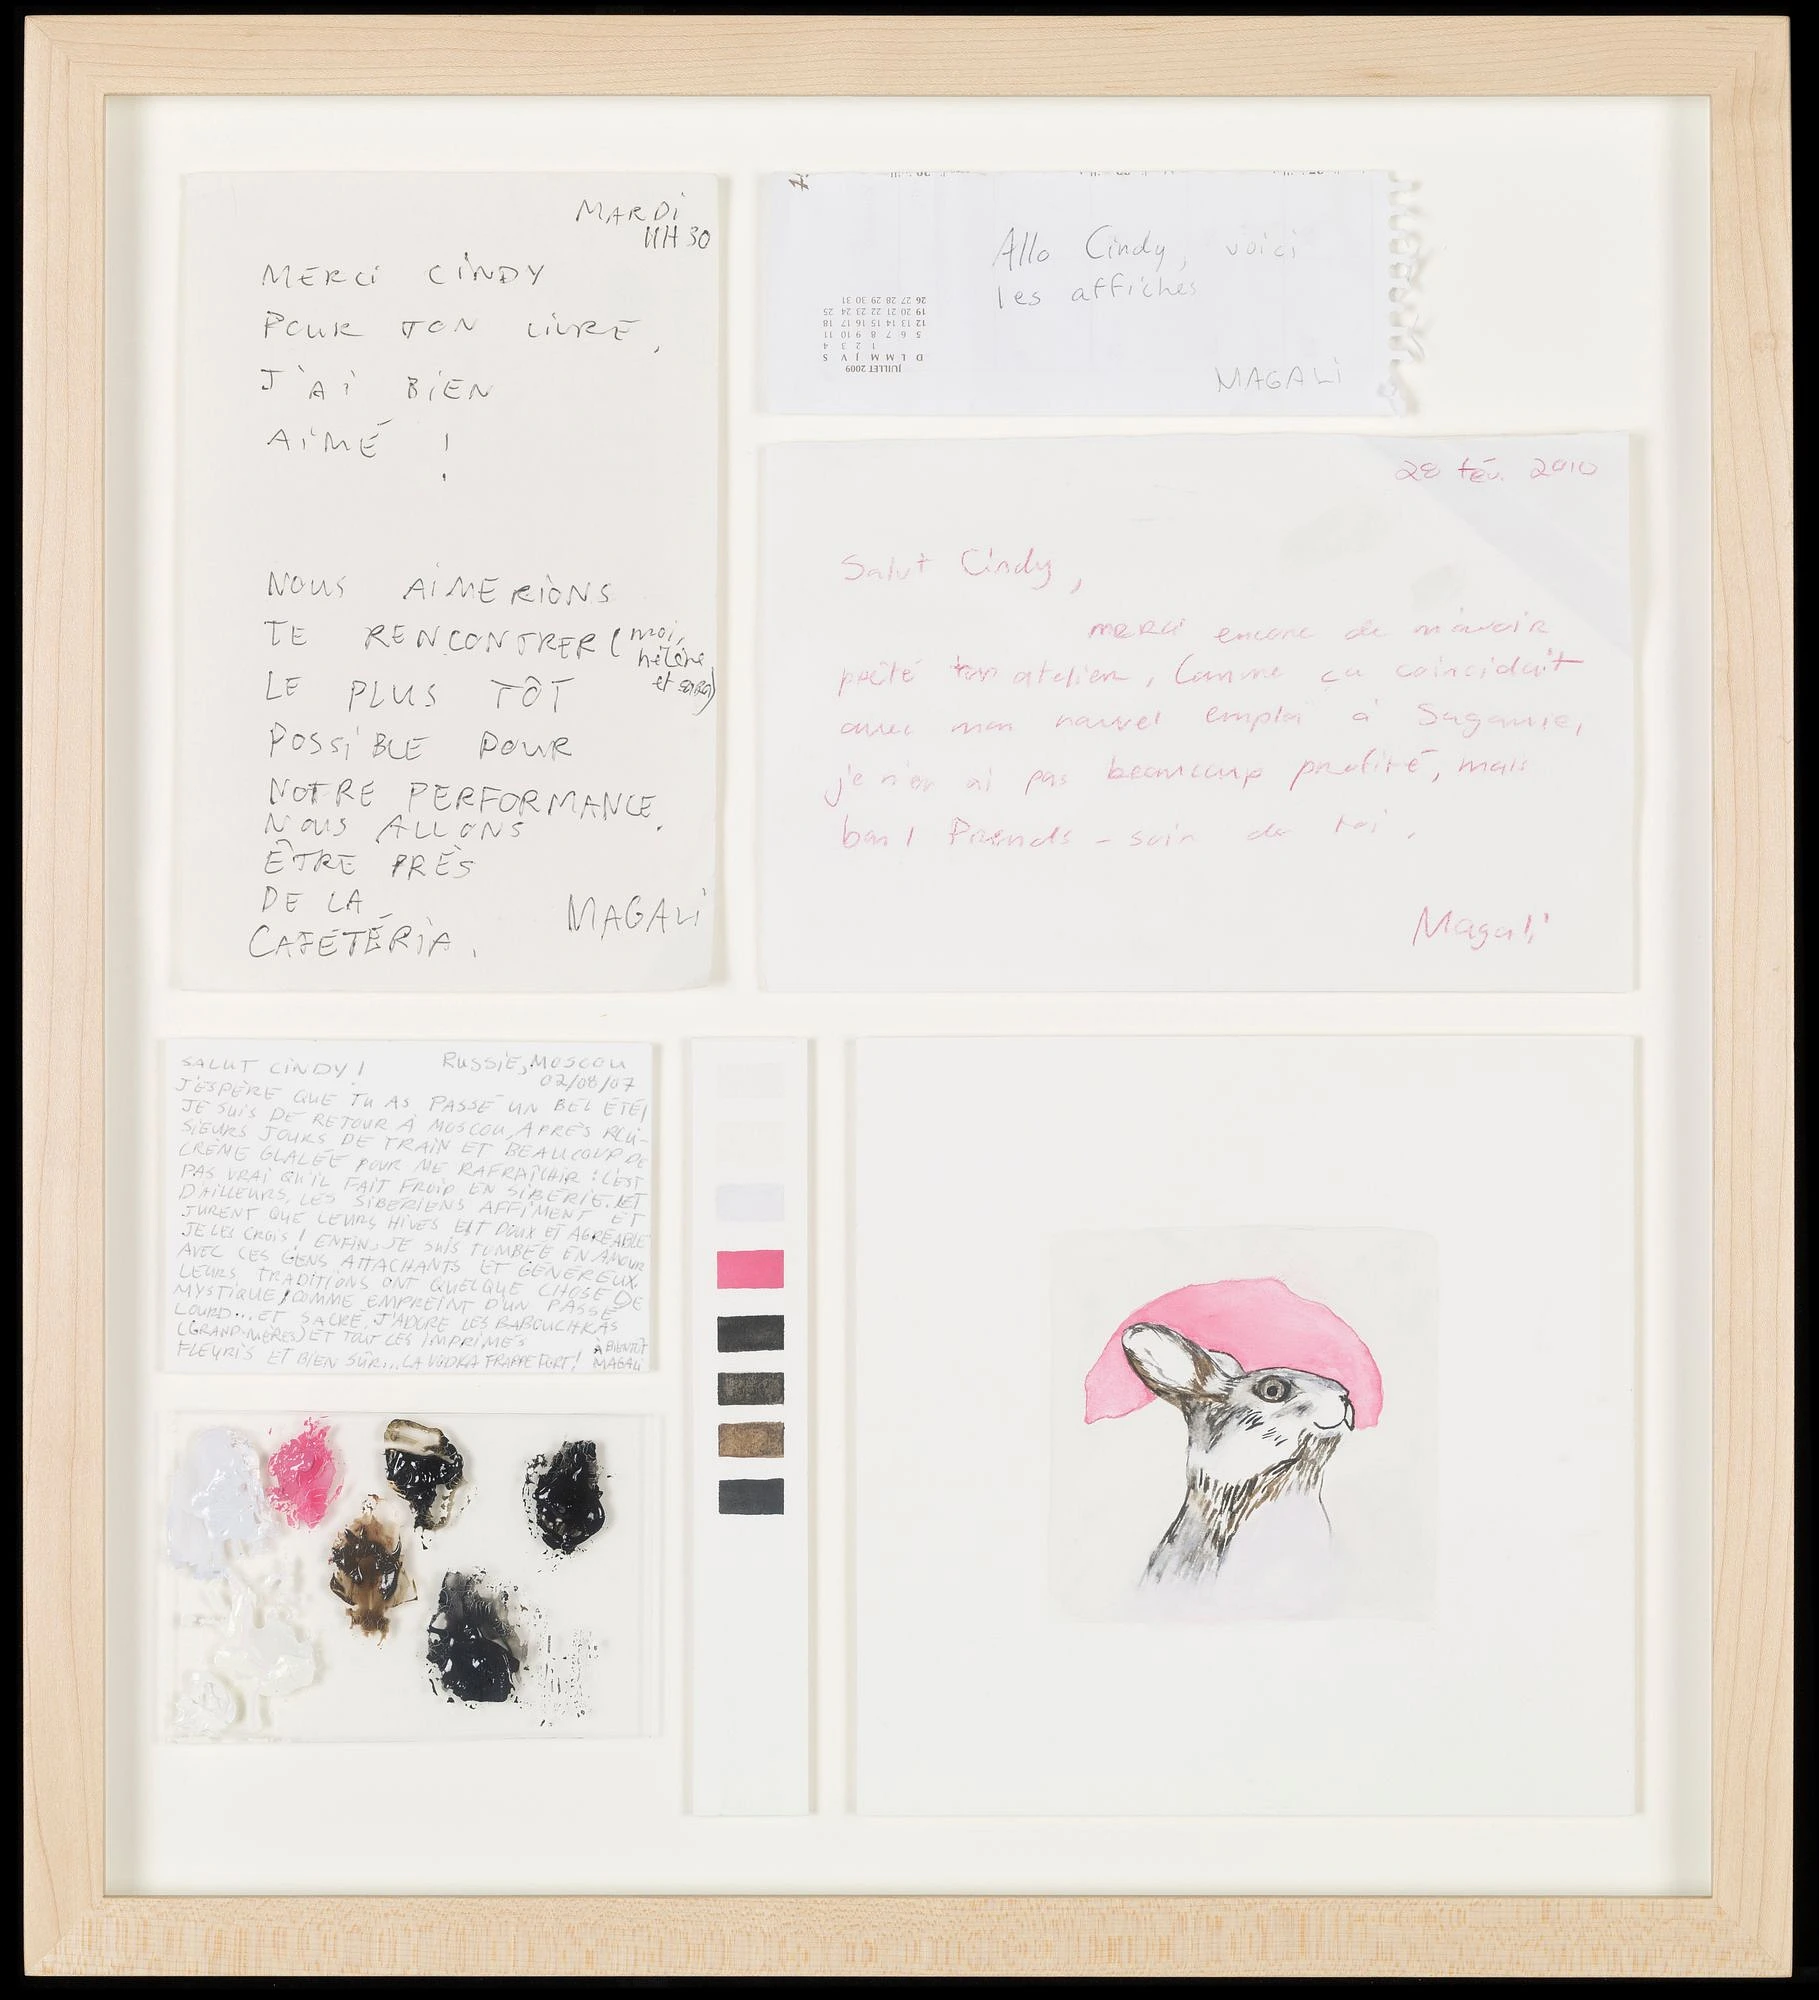 MARDI
11H30
MERCI CINDY
POUR TON LIVRE,
J'AI BIEN
AIMÉ !
NOUS AIMERIONS
TE RENCONTRER (moi,
hélène
et sara)
LE PLUS TÔT
POSSIBLE POUR
NOTRE PERFORMANCE.
NOUS ALLONS
ÊTRE PRÈS
DE LA
CAFÉTÉRIA.
MAGALI
Allo Cindy, voici
les affiches
MAGALI
JUILLET 2009
D L M M J V S
1 2 3 4
5 6 7 8 9 10 11
12 13 14 15 16 17 18
19 20 21 22 23 24 25
26 27 28 29 30 31
28 fév. 2010
Salut Cindy,
merci encore de m'avoir
prêté ton atelier, Comme ça coïncidait
avec mon nouvel emploi à Sagamie,
je n'en ai pas beaucoup profité, mais
bon! Prends-soin de toi.
Magali
SALUT CINDY! RUSSIE, MOSCOU
02/08/07
J'ESPÈRE QUE TU AS PASSÉ UN BEL ÉTÉ!
JE SUIS DE RETOUR À MOSCOU, APRÈS PLU-
SIEURS JOURS DE TRAIN ET BEAUCOUP DE
CRÈME GLALÉE POUR ME RAFRAÎCHIR : C'EST
PAS VRAI QU'IL FAIT FROID EN SIBÉRIE. ET
D'AILLEURS, LES SIBÉRIENS AFFIMENT ET
JURENT QUE LEURS HIVES EST DOUX ET AGRÉABLE
JE LES CROIS! ENFIN, JE SUIS TOMBÉE EN AMOUR
AVEC CES GENS ATTACHANTS ET GÉNÉREUX.
LEURS TRADITIONS ONT QUELQUE CHOSE DE
MYSTIQUE, COMME EMPREINT D'UN PASSÉ
LOURD... ET SACRÉ. J'ADORE LES BABOUCHKAS
(GRAND-MÈRES) ET TOUT LES IMPRIMÉS
FLEURIS ET BIEN SÛR... LA VODKA FRAPPE FORT!
À BIENTÔT
MAGALI